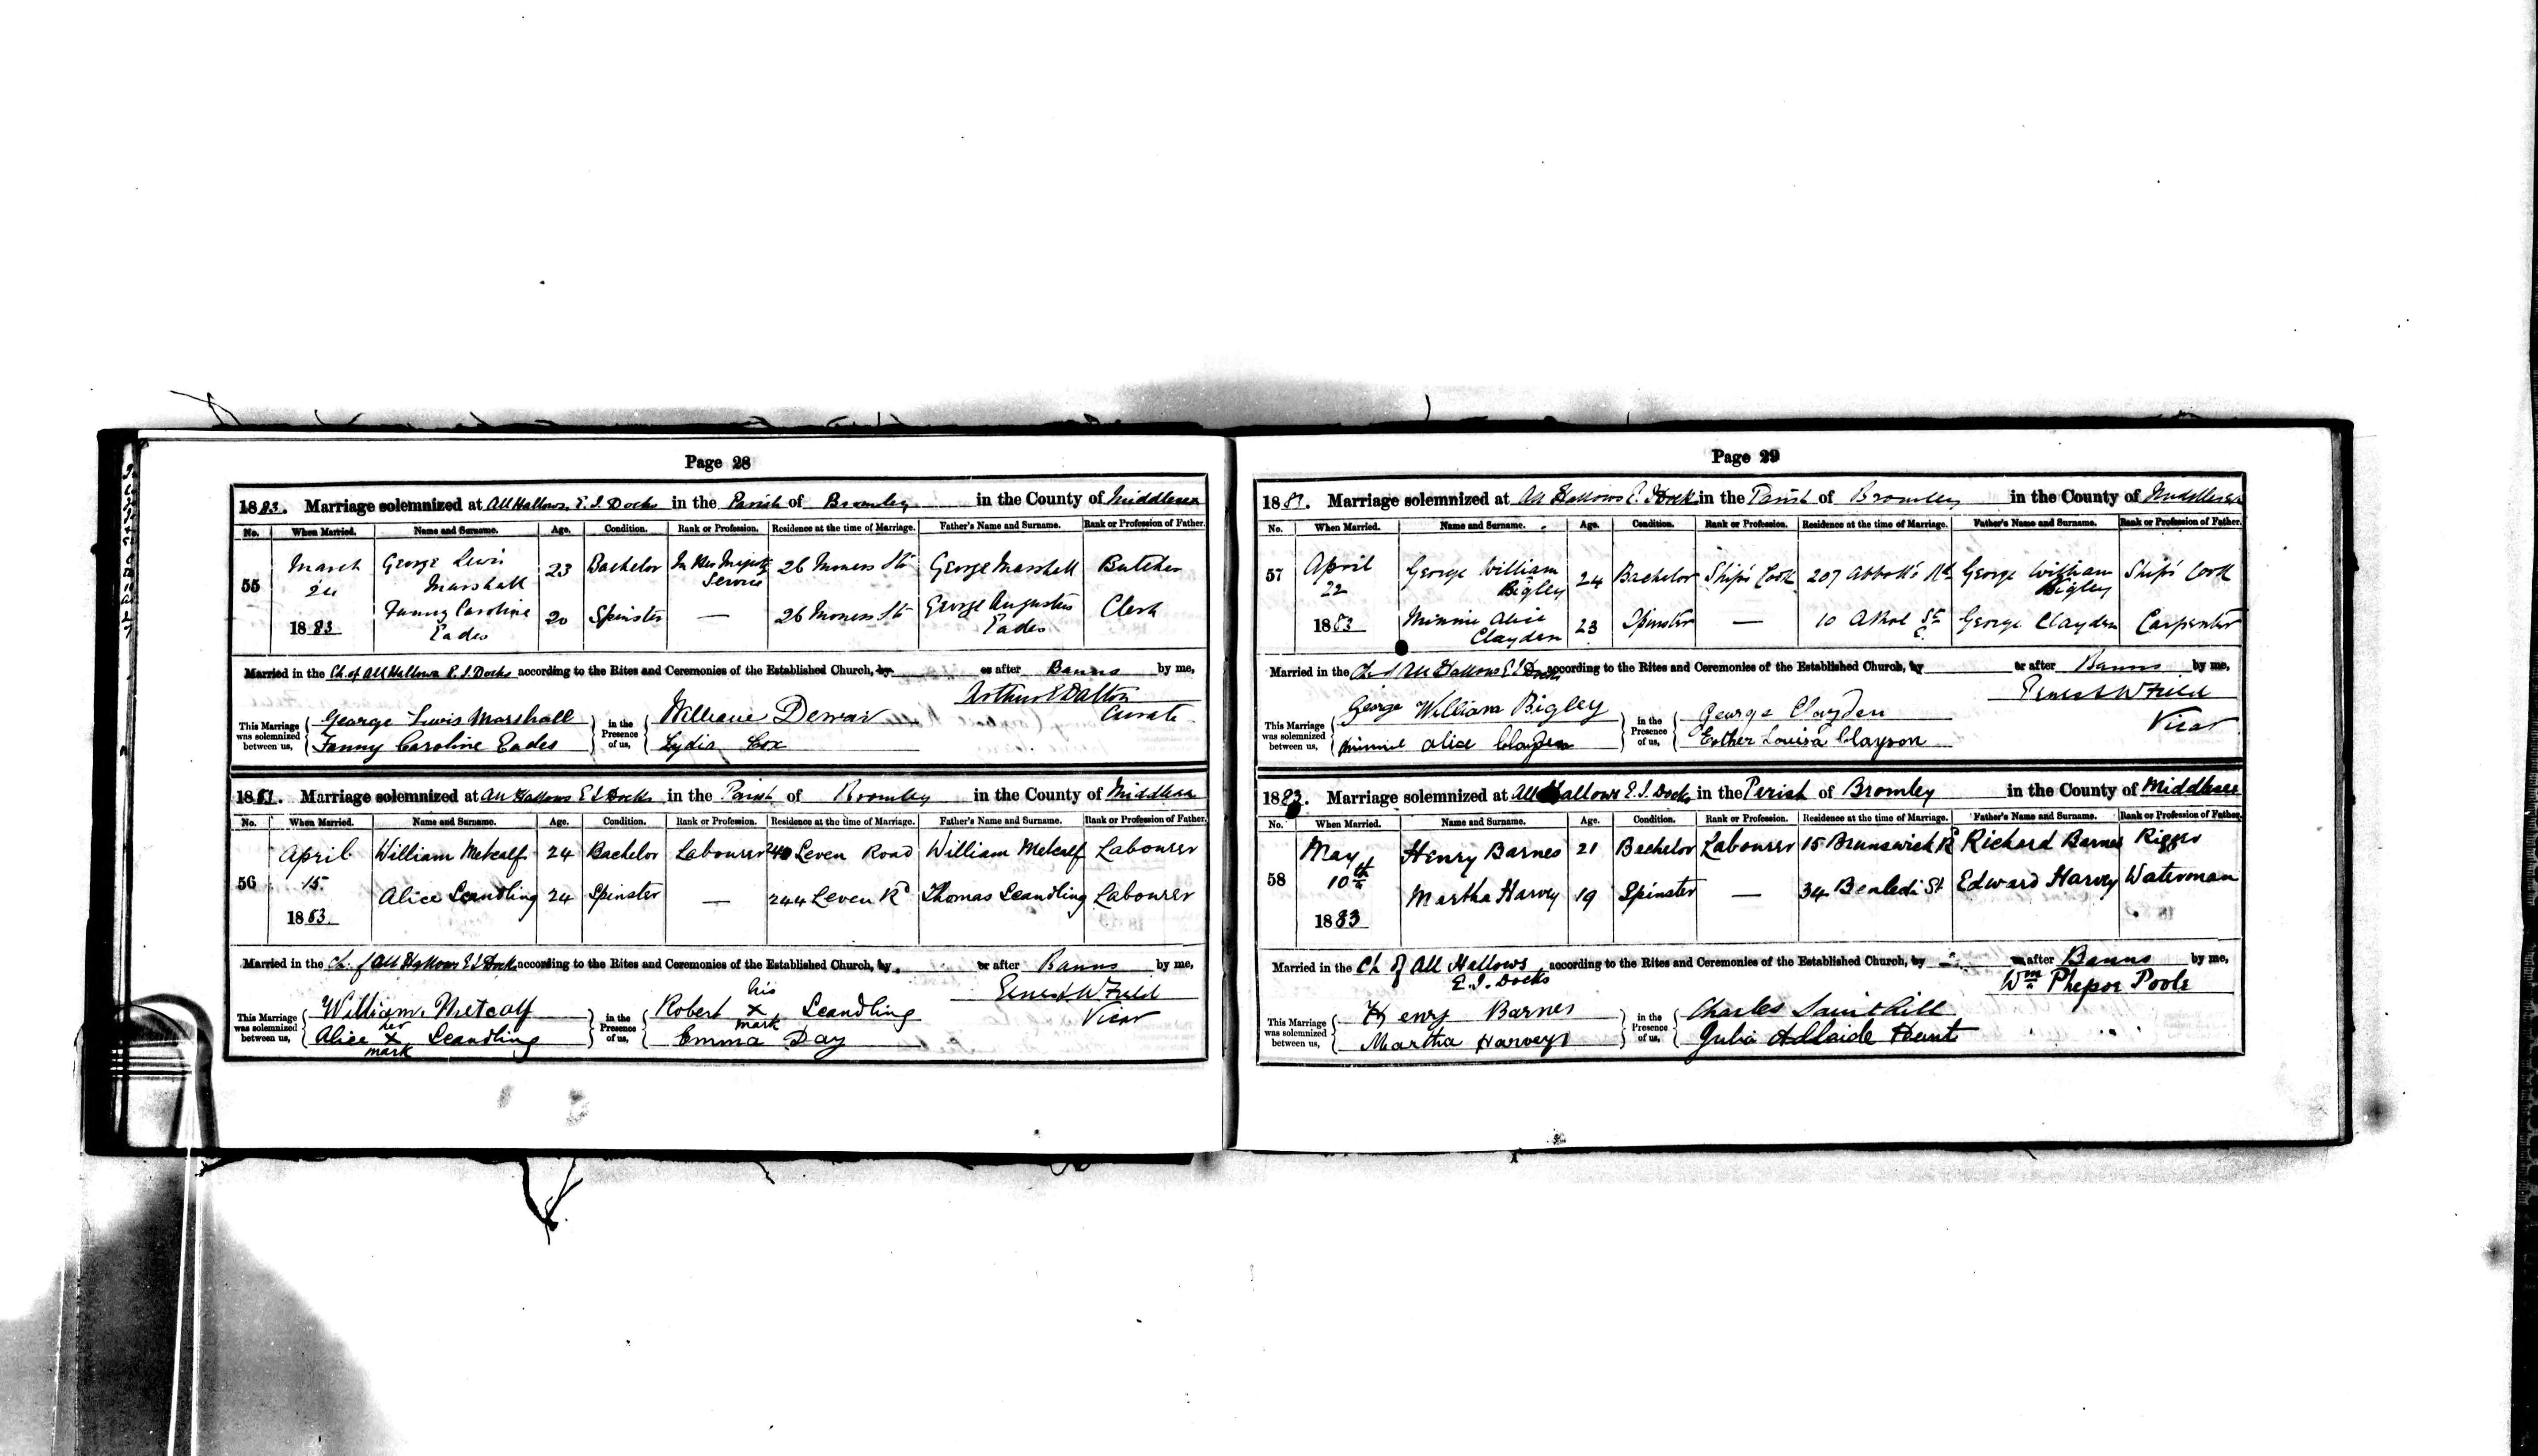 Page 28
1883. Marriage solemnized at All Hallows, E. I. Docks in the Parish of Bromley in the County of Middlesex
No. When Married. Name and Surname. Age. Condition. Rank or Profession. Residence at the time of Marriage. Father's Name and Surname. Rank or Profession of Father.
55 March 24 1883 George Lewis Marshall 23 Bachelor In Her Majesty's Service 26 Moness St George Marshall Butcher
Fanny Caroline Eades 20 Spinster — 26 Moness St George Augustus Eades Clerk
Married in the Ch. of All Hallows E. I. Docks according to the Rites and Ceremonies of the Established Church, by or after Banns by me,
Arthur E Dalton
Curate
This Marriage was solemnized between us, George Lewis Marshall in the Presence of us, William Dewar
Fanny Caroline Eades Lydia Cox
1883. Marriage solemnized at All Hallows E I Docks in the Parish of Bromley in the County of Middlesex
No. When Married. Name and Surname. Age. Condition. Rank or Profession. Residence at the time of Marriage. Father's Name and Surname. Rank or Profession of Father.
56 April 15. 1883. William Metcalf 24 Bachelor Labourer Leven Road William Metcalf Labourer
Alice Leandling 24 Spinster — 244 Leven Rd Thomas Leandling Labourer
Married in the Ch. of All Hallows E I Docks according to the Rites and Ceremonies of the Established Church, by or after Banns by me,
Ernest W Field
Vicar
This Marriage was solemnized between us, William Metcalf in the Presence of us, Robert his x mark Leandling
Alice her x mark Leandling Emma Day
Page 29
1883. Marriage solemnized at All Hallows E. I Docks in the Parish of Bromley in the County of Middlesex
No. When Married. Name and Surname. Age. Condition. Rank or Profession. Residence at the time of Marriage. Father's Name and Surname. Rank or Profession of Father.
57 April 22 1883 George William Bigley 24 Bachelor Ship's Cook 207 Abbott's Rd George William Bigley Ship's Cook
Minnie Alice Clayden 23 Spinster — 10 Athol St E. George Clayden Carpenter
Married in the Ch of All Hallows E I Docks according to the Rites and Ceremonies of the Established Church, by or after Banns by me,
Ernest W Field
Vicar
This Marriage was solemnized between us, George William Bigley in the Presence of us, George Clayden
Minnie Alice Clayden Esther Louisa Clayson
1883. Marriage solemnized at All Hallows E. I. Docks in the Parish of Bromley in the County of Middlesex
No. When Married. Name and Surname. Age. Condition. Rank or Profession. Residence at the time of Marriage. Father's Name and Surname. Rank or Profession of Father.
58 May 10th 1883 Henry Barnes 21 Bachelor Labourer 15 Brunswick Rd Richard Barnes Rigger
Martha Harvey 19 Spinster — 34 Benledi St Edward Harvey Waterman
Married in the Ch of All Hallows E. I. Docks according to the Rites and Ceremonies of the Established Church, by or after Banns by me,
Wm Poole
This Marriage was solemnized between us, Henry Barnes in the Presence of us, Charles Sainthill
Martha Harvey Julia Adelaide Hunt